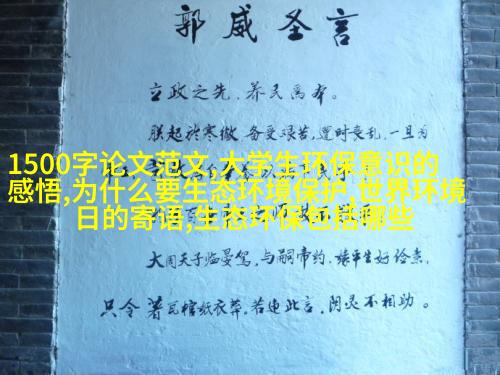 郭威圣言
立政之先，养民為本。
朕起於寒微，备受艰苦，遭时丧乱，一旦為
1500字论文范文,大学生环保意识的
感悟,为什么要生态环境保护,世界环境
日的寄语,生态环保包括哪些
大周天子临晏驾，与嗣帝约，缘平生好俭素，
只令著瓦棺纸衣葬，若违此言，阴灵不相助。